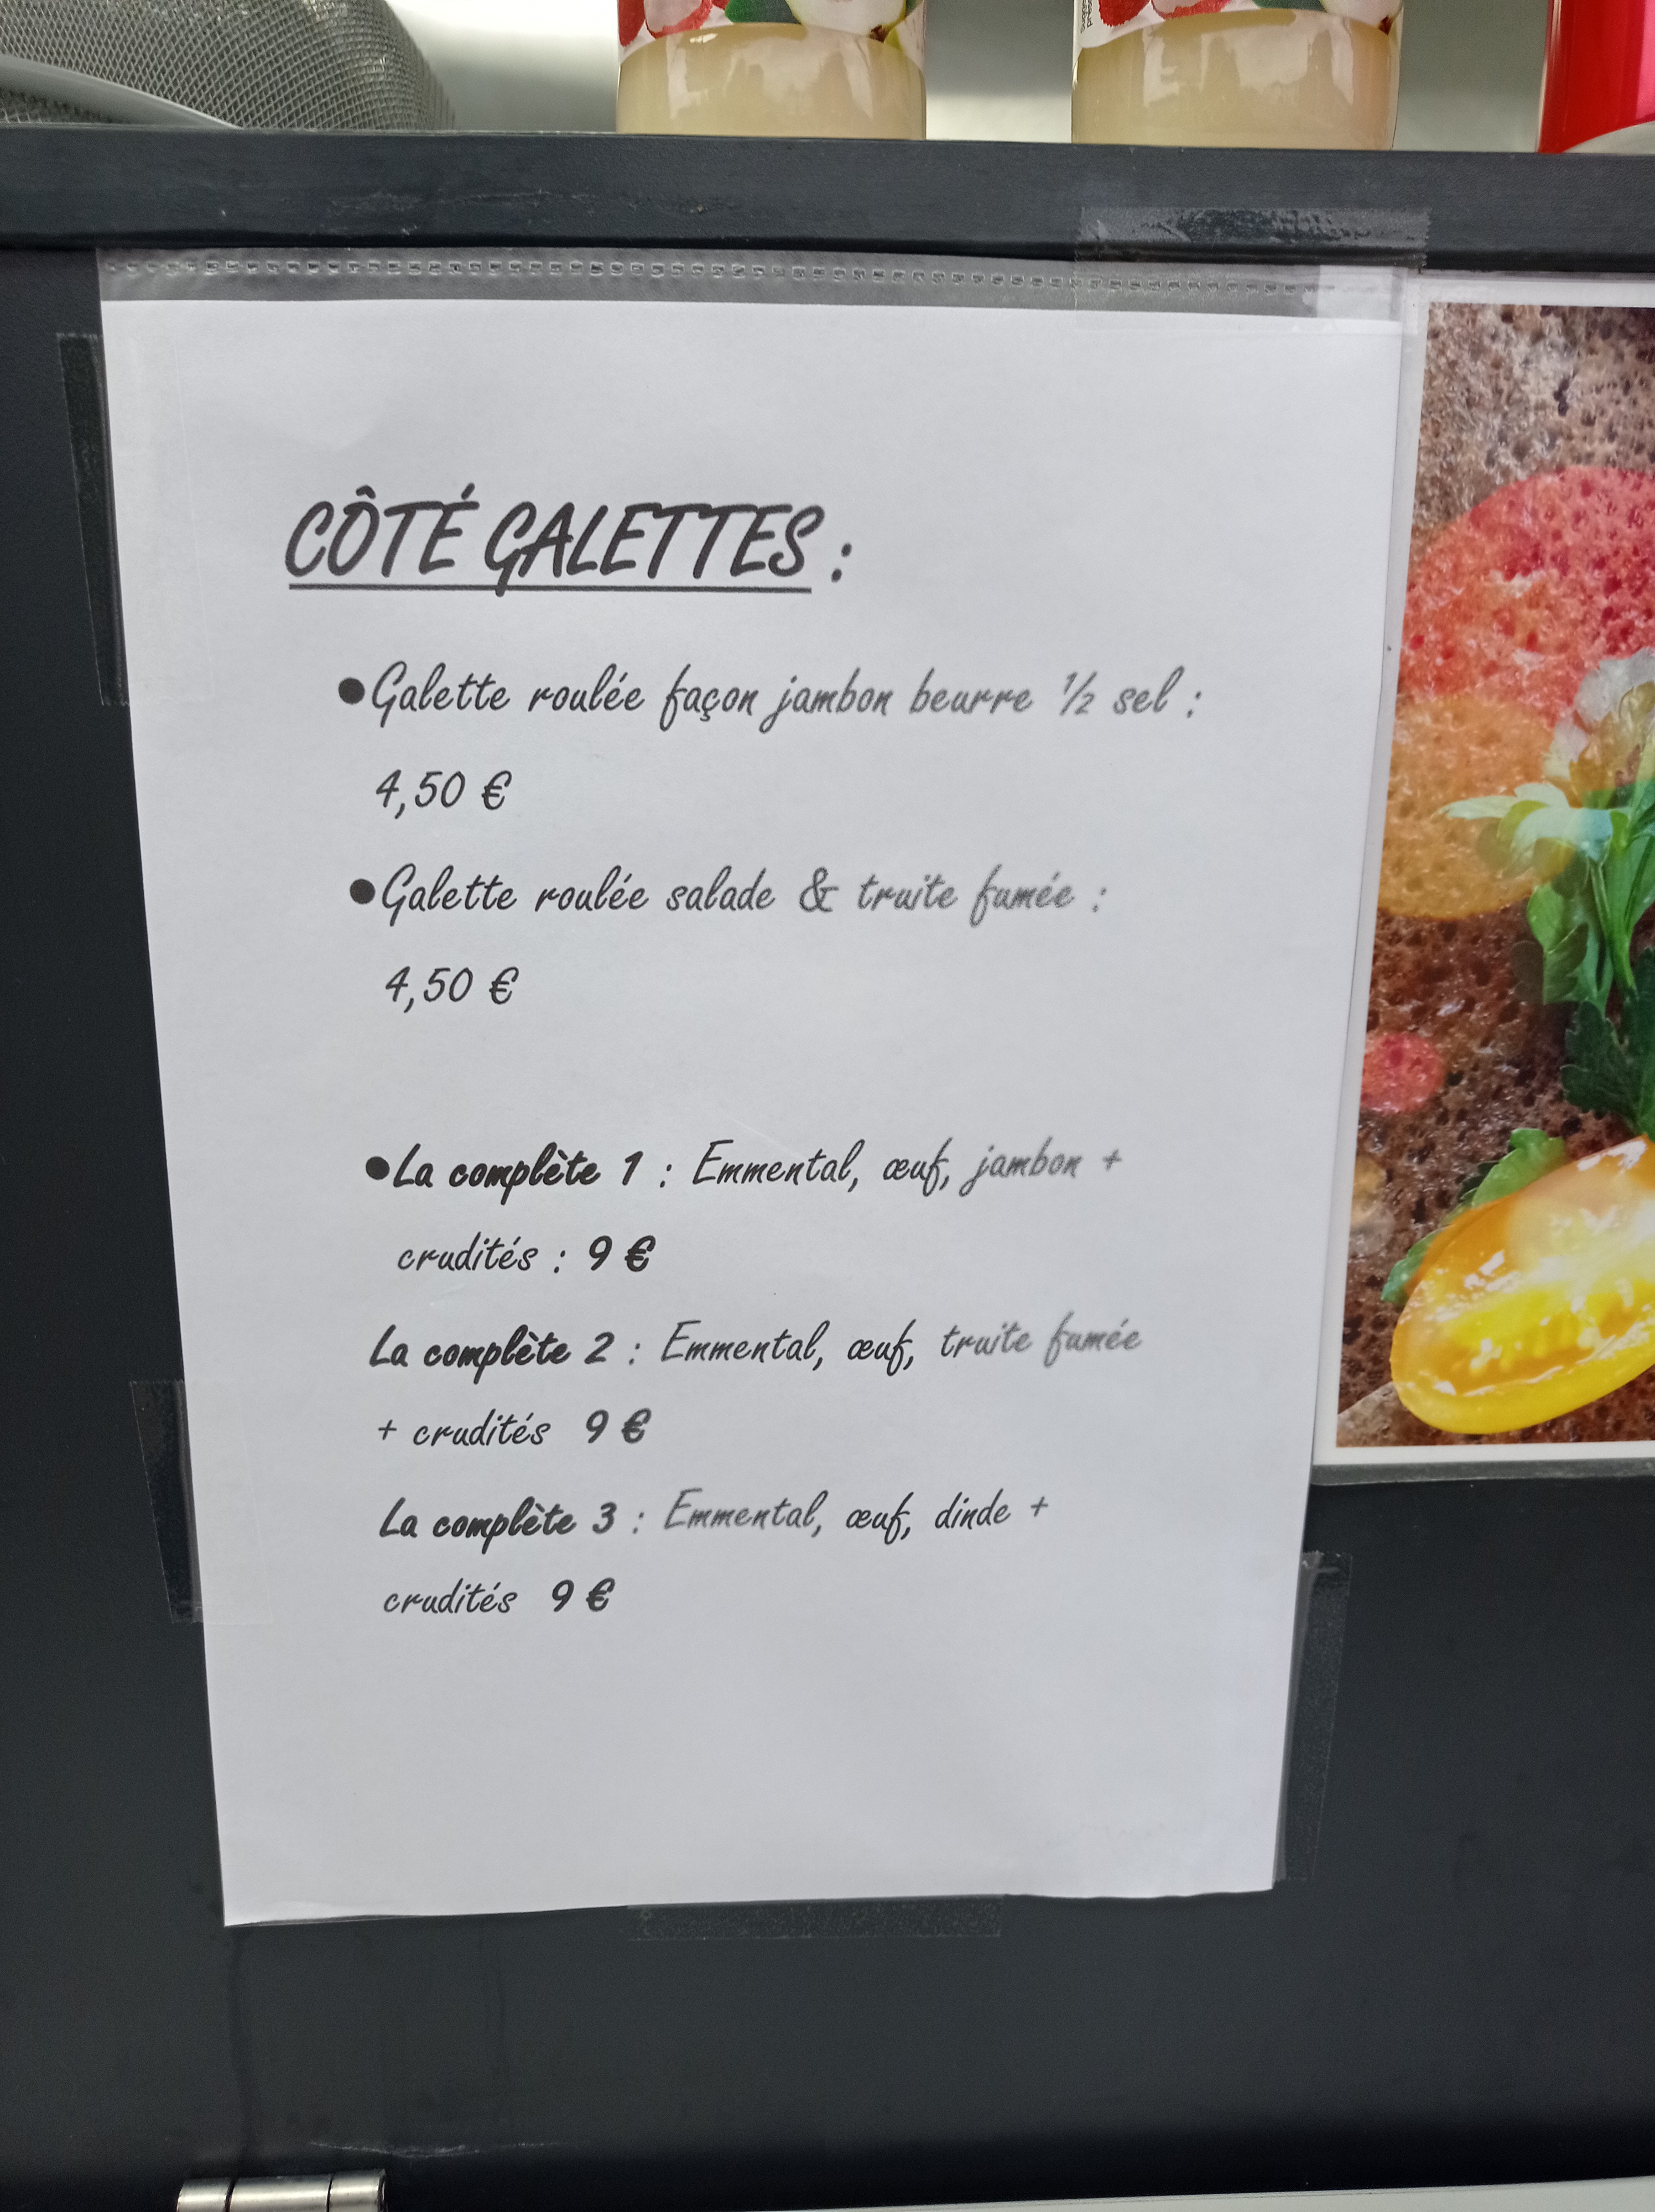 CÔTÉ GALETTES :
●Galette roulée façon jambon beurre ½ sel :
4,50 €
●Galette roulée salade & truite fumée :
4,50 €
●La complète 1 : Emmental, œuf, jambon +
crudités : 9 €
La complète 2 : Emmental, œuf, truite fumée
+ crudités 9 €
La complète 3 : Emmental, œuf, dinde +
crudités 9 €